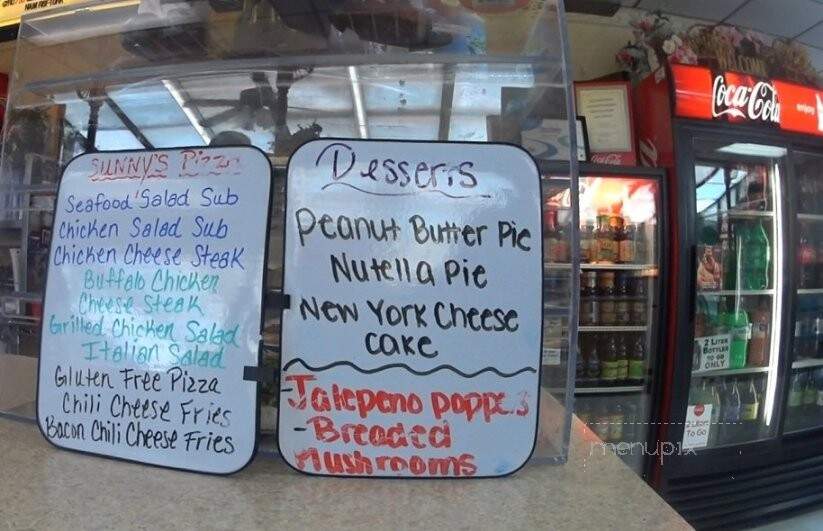 SUNNY'S Pizza
Seafood Salad Sub
Chicken Salad Sub
Chicken Cheese Steak
Buffalo Chicken
Cheese Steak
Grilled Chicken Salad
Italian Salad
Gluten Free Pizza
Chili Cheese Fries
Bacon Chili Cheese Fries
Desserts
Peanut Butter Pie
Nutella Pie
New York Cheese
Cake
-Jalepeno poppers
-Breaded
Mushrooms
WELCOME
Coca-Cola
enjoy
Coca-Cola
2 LITER
BOTTLES
TO GO
ONLY
2 Liters
To Go
menupix